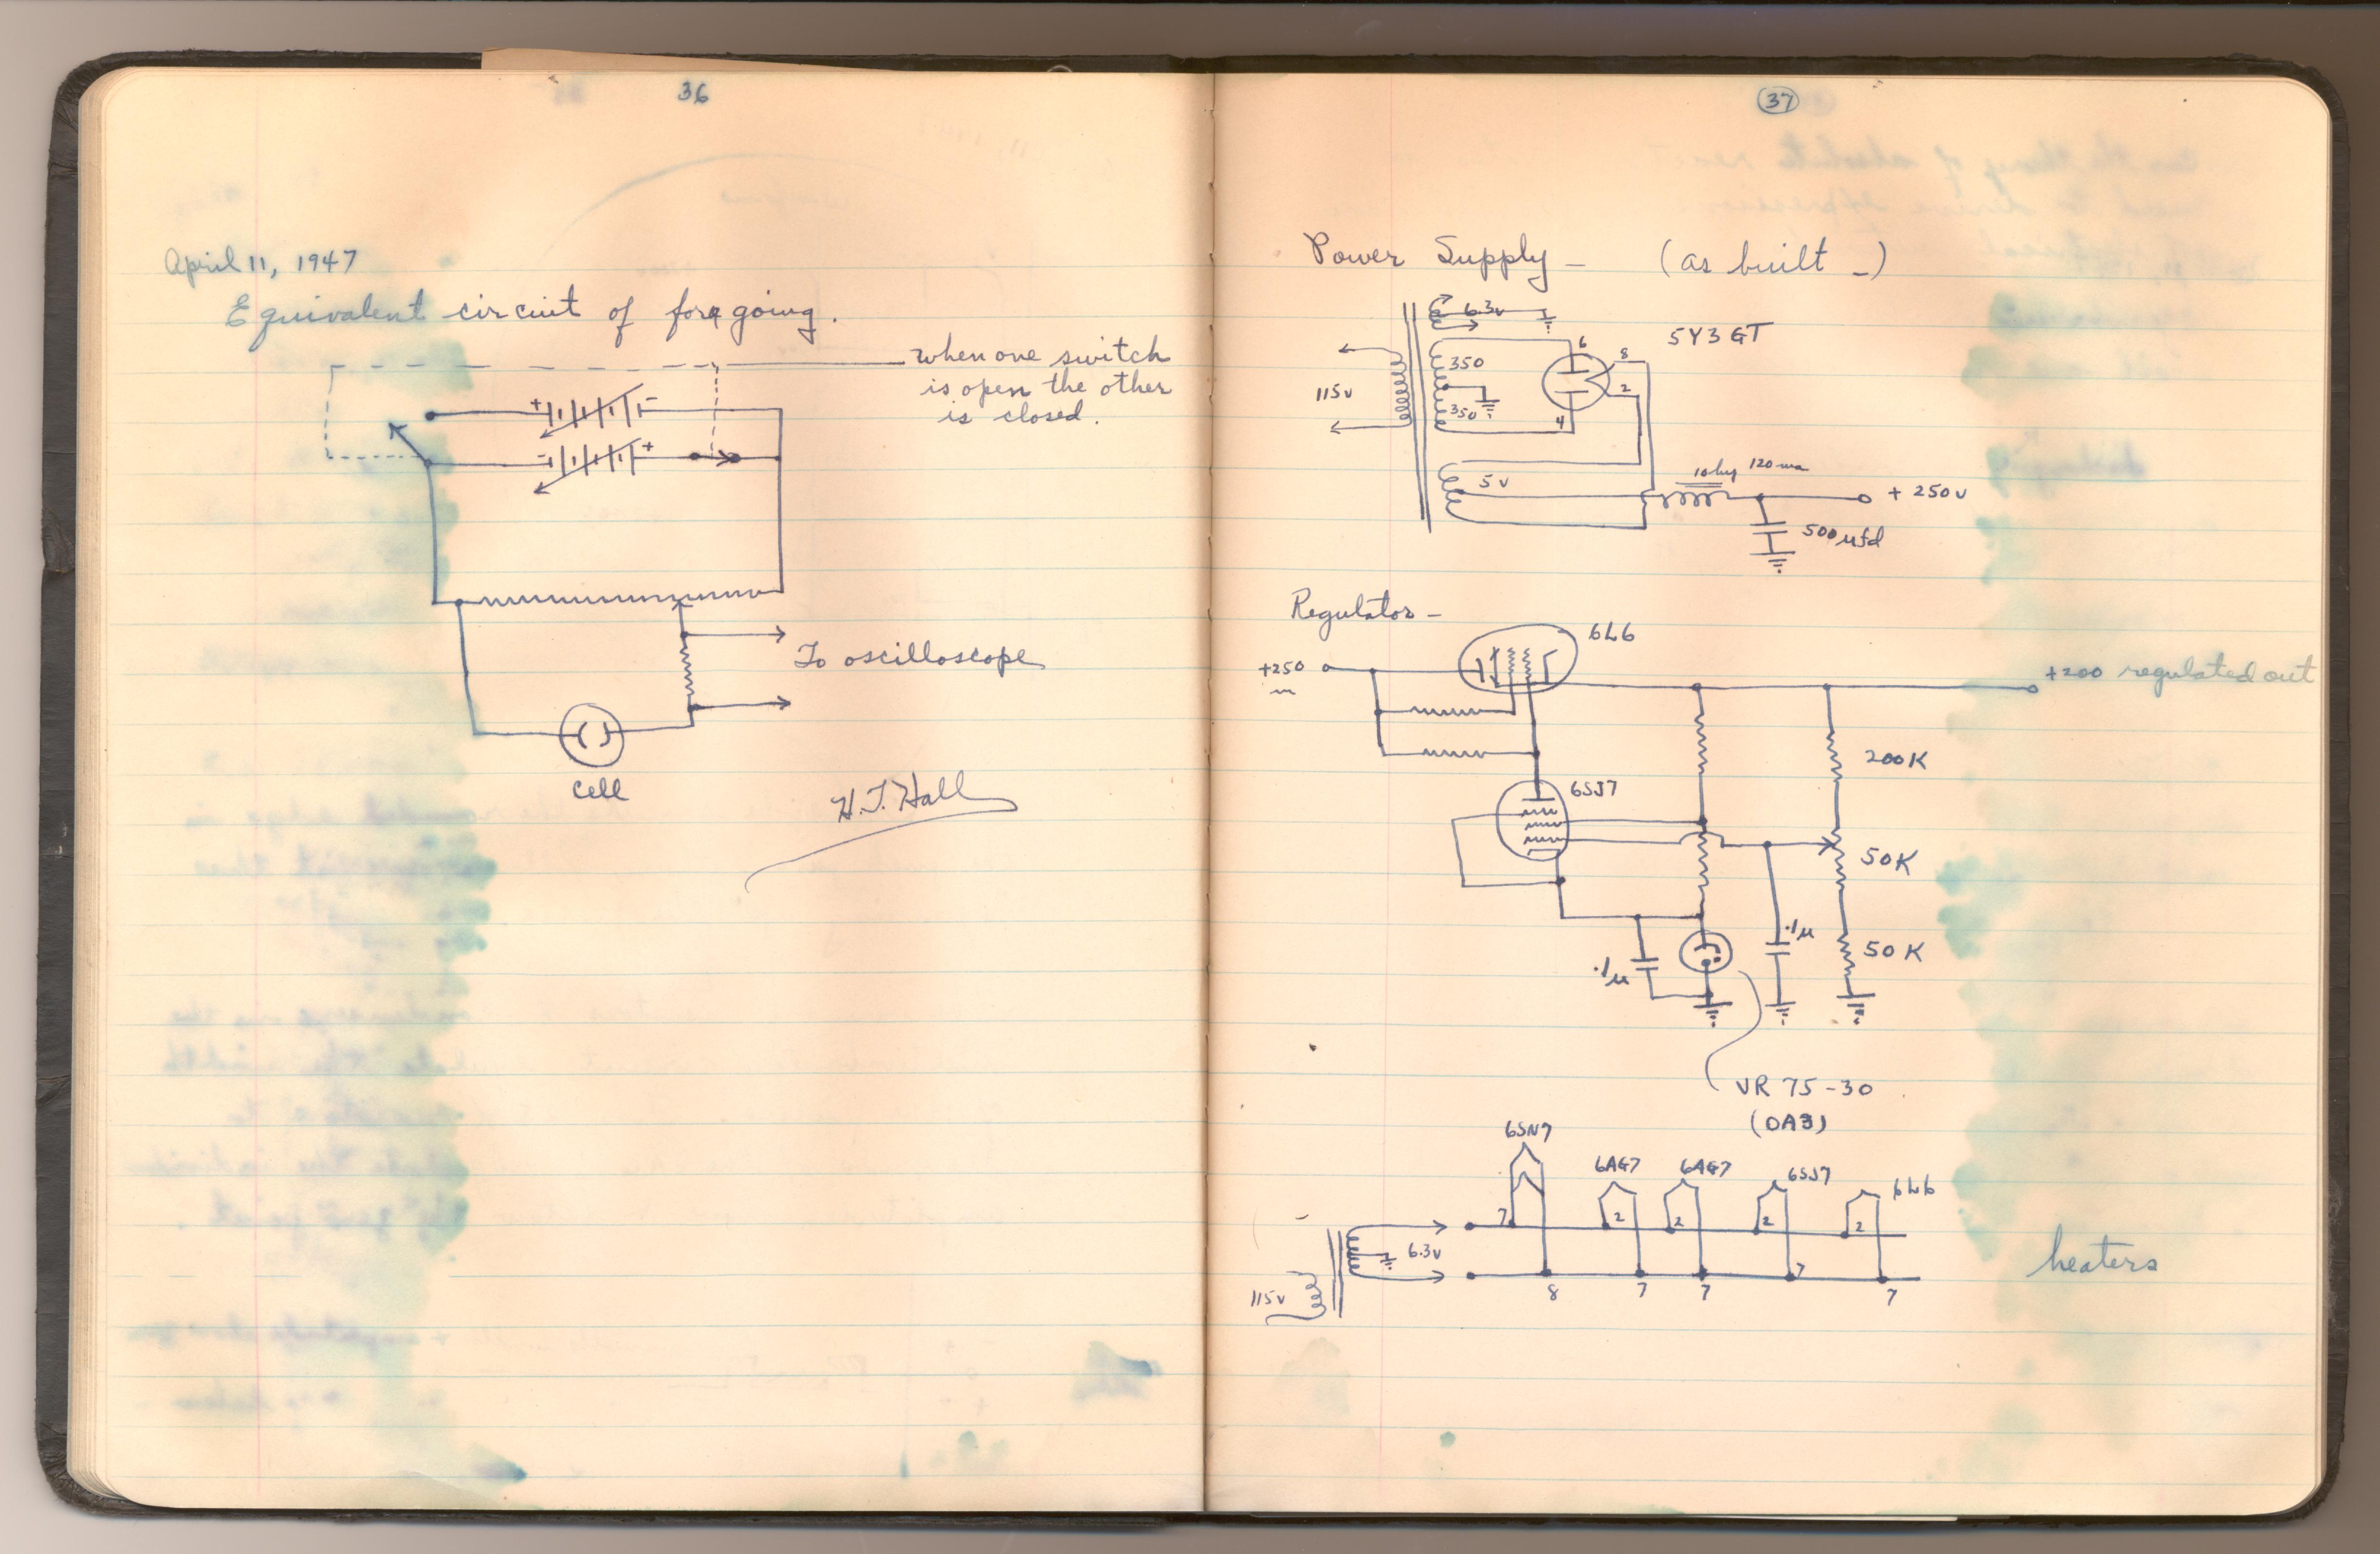 36
April 11, 1947
Equivalent circuit of foregoing.
when one switch
is open the other
is closed.
+ -
- +
To oscilloscope
cell
H.T. Hall
37
Power Supply - (as built -)
6.3v
5Y3GT
6
8
350
115v
2
350
4
5v
10hy 120 ma
+ 250v
500 µfd
Regulator -
6L6
+250
in
+200 regulated out
200K
6SJ7
50K
.1µ
50K
.1µ
VR 75-30
(OA3)
6SN7
6AG7 6AG7 6SJ7 6L6
7 2 2 2 2
6.3v
heaters
115v
8 7 7 7 7